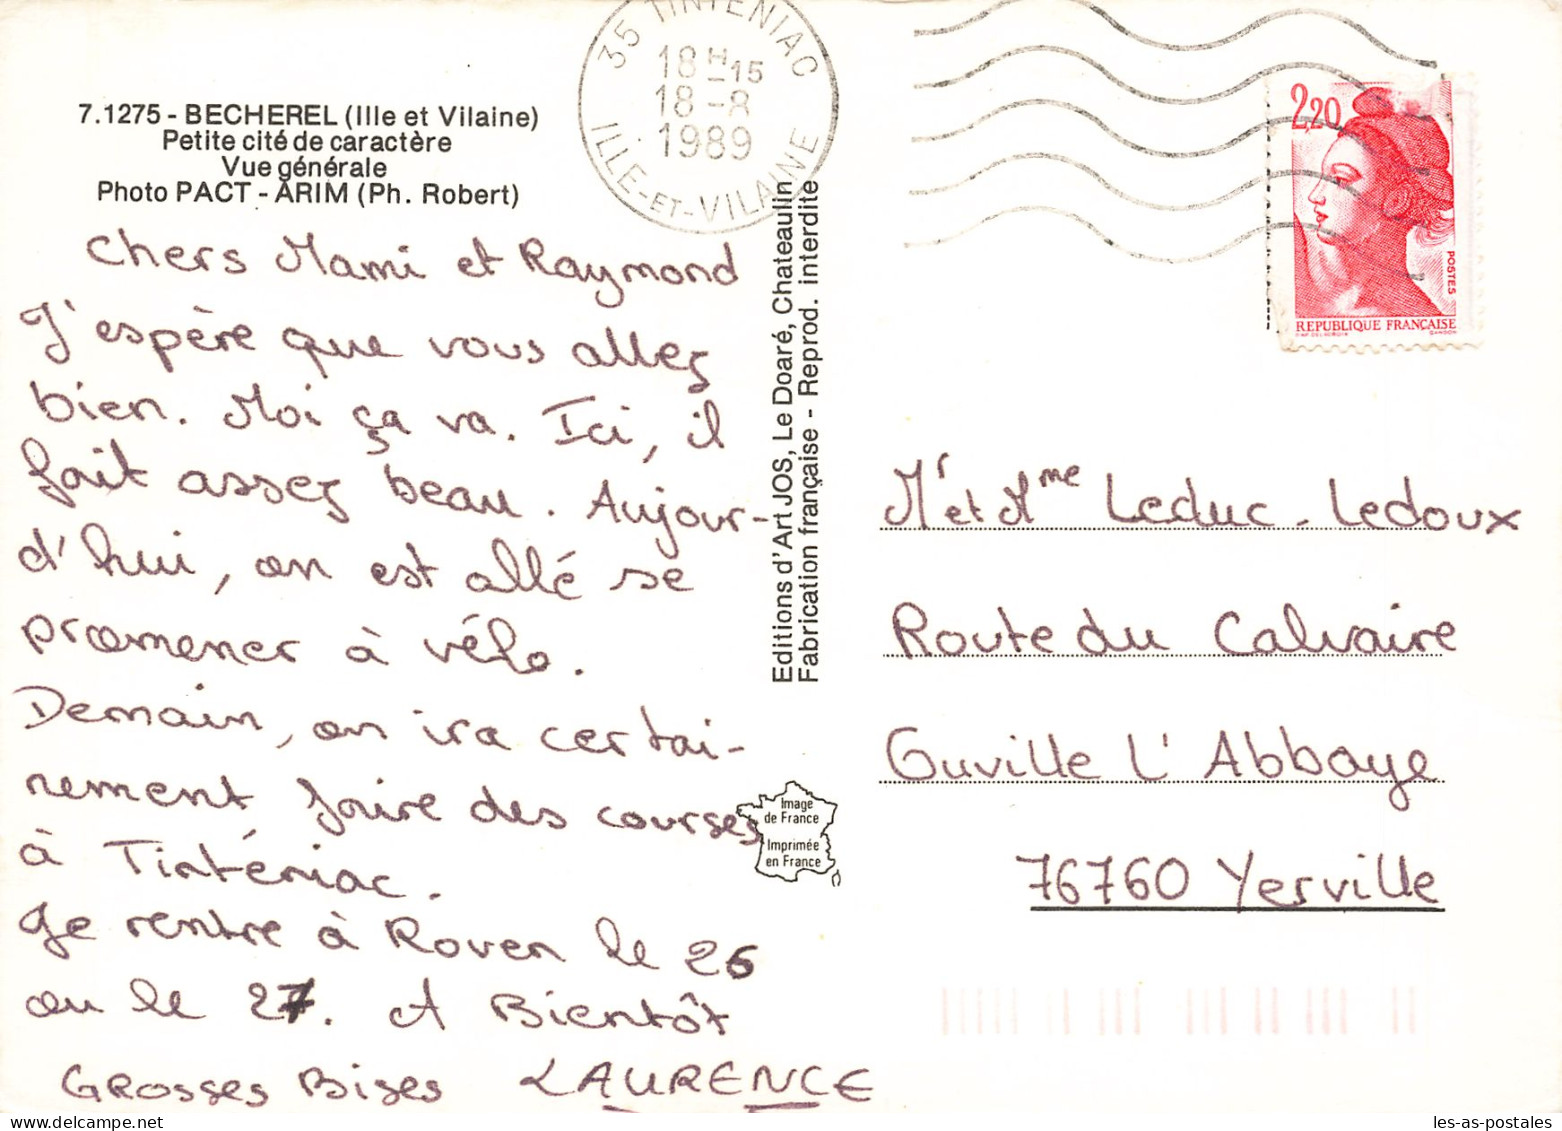 35 TINTENIAC
18H15
18-8
1989
ILLE-ET-VILAINE
7.1275 - BECHEREL (Ille et Vilaine)
Petite cité de caractère
Vue générale
Photo PACT - ARIM (Ph. Robert)
Chers Mami et Raymond
J'espère que vous allez
bien. Moi ça va. Ici, il
fait assez beau. Aujour-
d'hui, on est allé se
promener à vélo.
Demain, on ira certai-
nement faire des courses
à Tinténiac.
Je rentre à Rouen le 26
ou le 27. A Bientôt
GROSSES BISES LAURENCE
Editions d'Art JOS, Le Doaré, Chateaulin
Fabrication française - Reprod. interdite
Image
de France
Imprimée
en France
2,20
POSTES
REPUBLIQUE FRANÇAISE
GANDON
Mr et Mme Leduc - Ledoux
Route du Calvaire
Guville L'Abbaye
76760 Yerville
les-as-postales